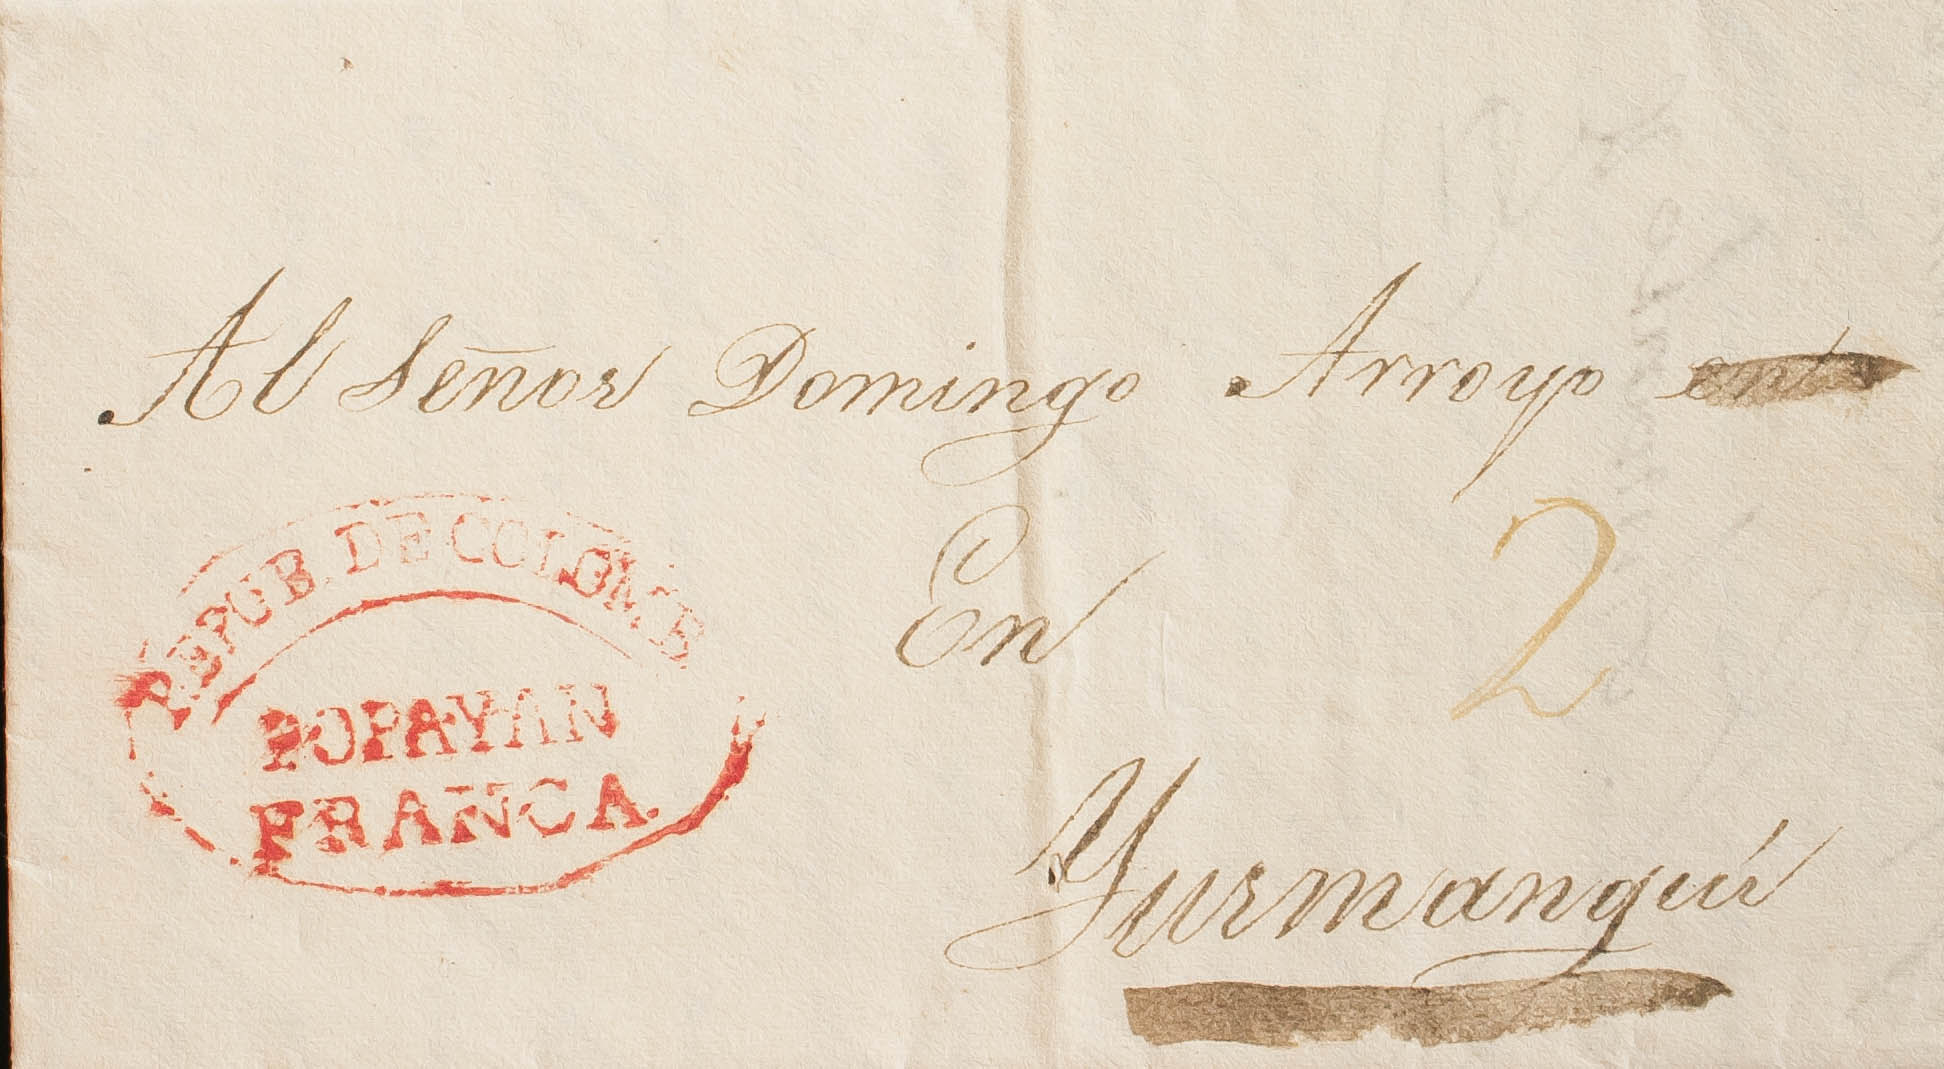 Al Señor Domingo Arroyo
REPUB. DE COLOMB
POPAYAN
FRANCA.
En
2
Yurmanguí